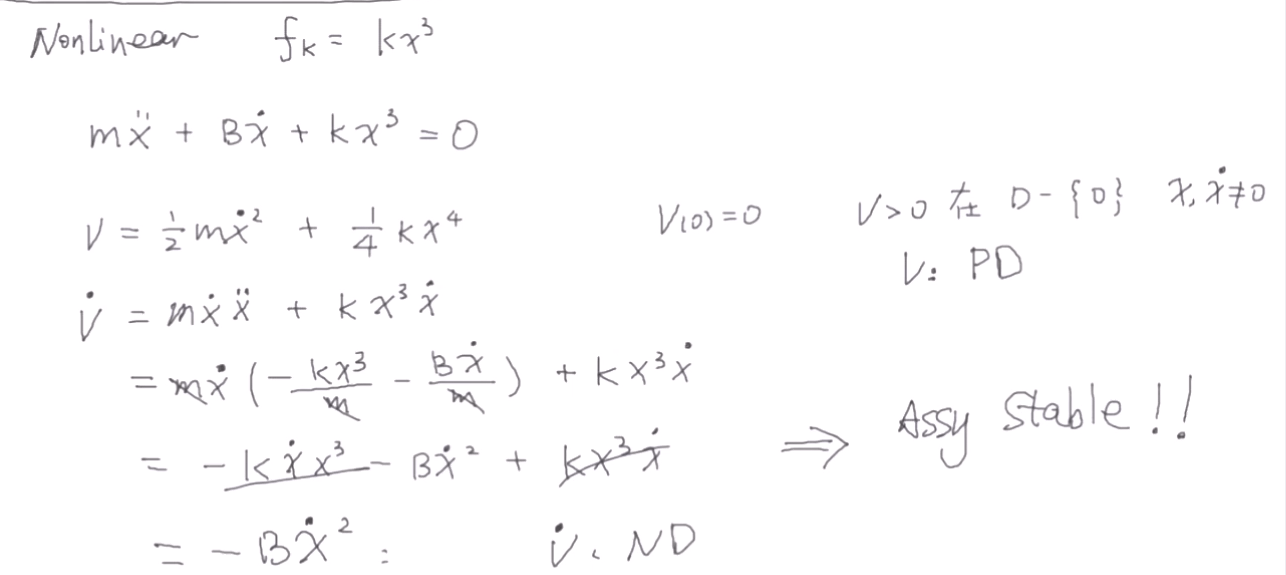 Nonlinear fk = kx³
mẍ + Bẋ + kx³ = 0
V = ½mẋ² + ¼kx⁴ V(0)=0 V>0 在 D-{0} x,ẋ≠0
V: PD
V̇ = mẋẍ + kx³ẋ
= mẋ(-kx³/m - Bẋ/m) + kx³ẋ
= -kẋx³ - Bẋ² + kx³ẋ ⇒ Assy Stable!!
= -Bẋ² : V̇: ND